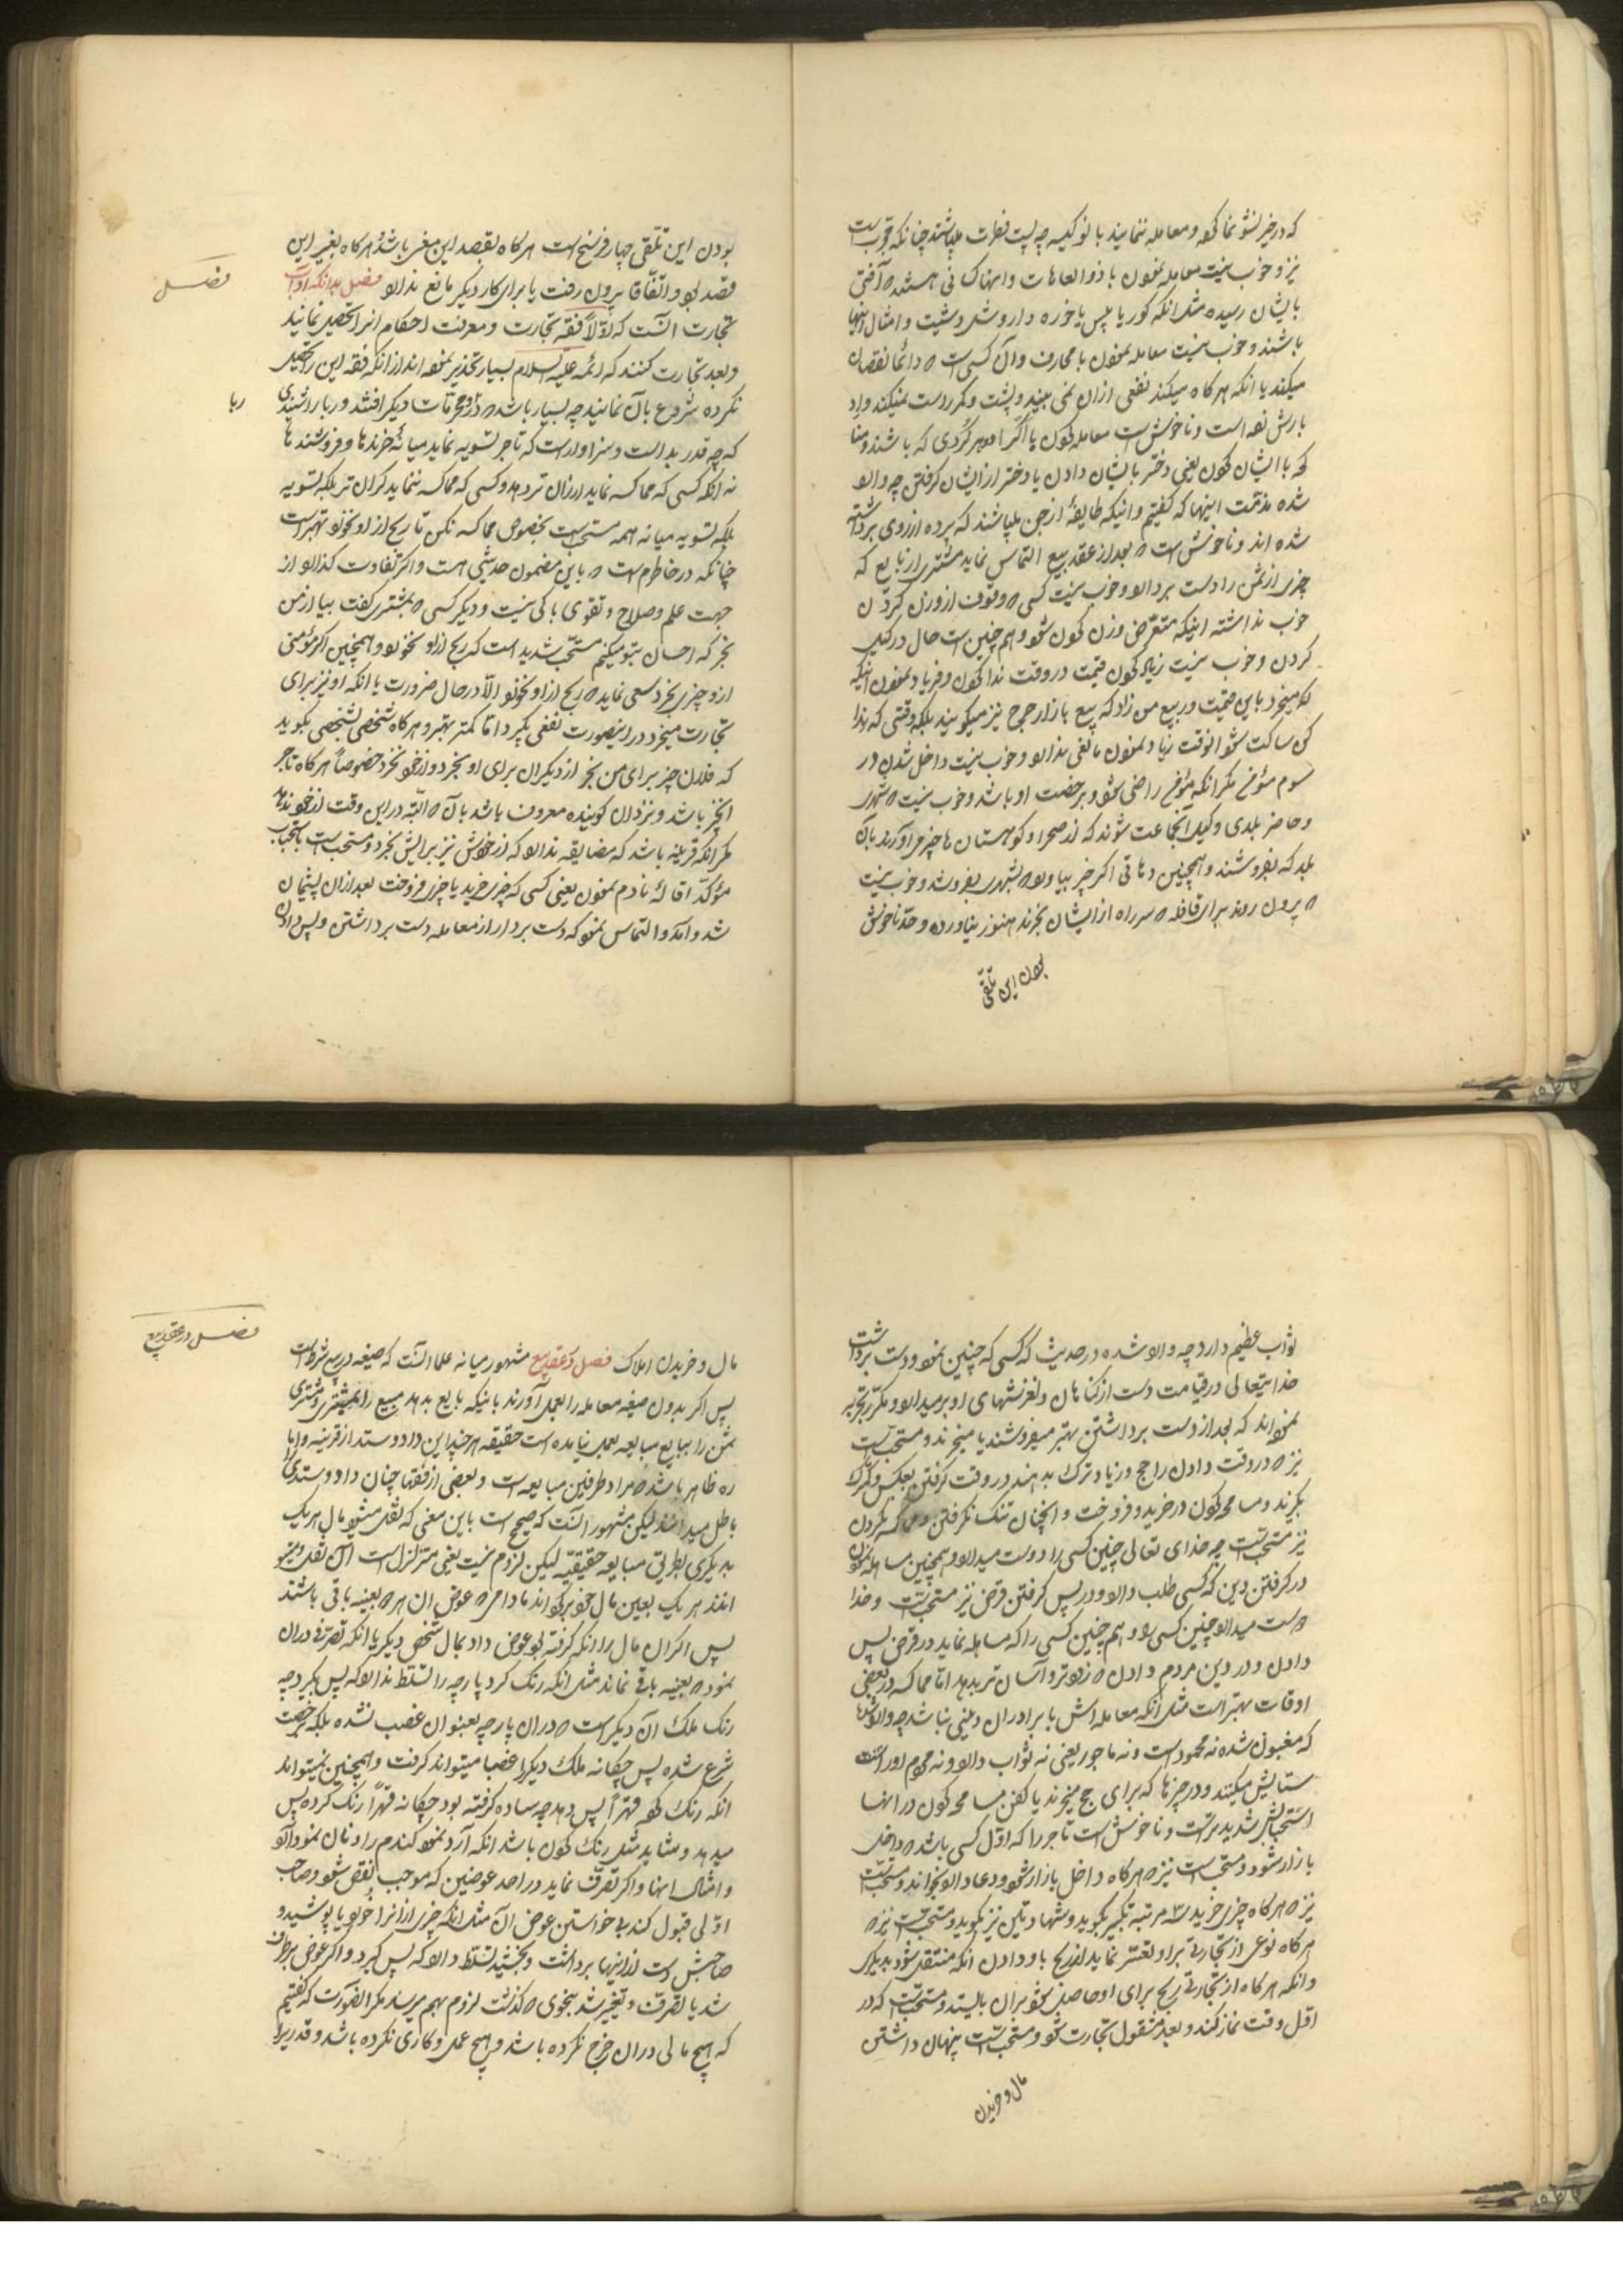 که در خیر نشو نما کرده و معامله ننمایند با نو کیسه چه پست فطرت میباشند چنانکه مجرب است
نیز و خوب نیست معامله نمودن با ذو العاهات و اینها کسانی هستند که آفتی
بایشان رسیده مثل انکه کور یا پیس یا خوره دار و شل و شیت و امثال اینها
باشند و خوب نیست معامله نمودن با محارف و آن کسی است که دائما نقصان
میکند یا انکه هر کاه میکند نفعی ازان نمی بیند و پشت و کمر راست نمیکند و اد
بارش نموده است و ناخوش است معامله کردن با اکراد و هر کردی که باشند و منا
کحه با ایشان کردن یعنی دختر بایشان دادن یا دختر از ایشان کرفتن چه وارد
شده مذمت اینها که کفتیم و اینکه طایفهٔ از جن میباشند که پرده از روی برداشته
شده اند و ناخوش است که بعد از عقد بیع التماس نماید مشتری از بایع که
چیزی از ثمن را دست بردارد و خوب نیست کسی که وقوف از وزن کردن
خوب نداشته اینکه متعرض وزن کردن شود و هم چنین است حال در کیل
کردن و خوب نیست زیاد کردن قیمت در وقت ندا کردن و فریاد نمودن اینکه
که میخرد باین قیمت و ربیع من زاد که بیع بازار حراج نیز میکویند بلکه وقتی که ندا
کن ساکت شود انوقت زیاد نمودن مانعی ندارد و خوب نیست داخل شدن در
سوم مؤمن مکر انکه مؤمن راضی شود و برخصت او باشد و خوب نیست که شهری
و حاضر بلدی وکیل آنجماعت شوند که از صحرا و کوهستان ها چیز میآورند بآن
بلد که بفروشند و همچنین دهاتی اکر چیز بیاورد که شهری بفروشد و خوب نیست
که بیرون روند برای قافله که سر راه از ایشان بخرند هنوز نیاورده و حد ناخوش
بودن این تلقی
بودن این تلقی چهار فرسخ است هر کاه بقصد این معنی باشد و هر کاه بغیر این
قصد بود و اتفاقا بیرون رفت یا برای کار دیکر مانع ندارد فصل بدانکه آداب
فصل
تجارت انست که اولا فقه تجارت و معرفت احکام انرا تحصیل نمانید
و بعد تجارت کنند که ائمه علیهم السلام بسیار تحذیر نموده اند از انکه فقه این را تحصیل
نکرده شروع بآن نمایند چه بسیار باشد که در محرمات دیکر افتند و ربا را شنیدی
ربا
که چه قدر بد است و سزاوار است که تاجر تسویه نماید میانهٔ خرندها و فروشندها
نه انکه کسی که مماکسه نماید ارزان تر دهد و کسی که مماکسه ننماید کران تر بلکه تسویه
بلکه تسویه میانه همه مستحب است بخصوص مماکسه نکن تا ربح از او نخورد بهتر است
چنانکه در خاطرم هست که باین مضمون حدیثی هست و اکر تفاوت کذارد از
جهت علم و صلاح و تقوی باکی نیست و دیکر کسی که بمشتری کفت بیا از من
بخر که احسان بتو میکنم مستحب شدید است که ربح از او نخورد و همچنین اکر مؤمنی
ازو چیزی بخرد سعی نماید که ربح از او نخورد الا در حال ضرورت یا انکه او نیز برای
تجارت میخرد در اینصورت نفعی بکیرد اما کمتر بهتر و هر کاه شخصی بشخصی بکوید
که فلان چیز برای من بخر از دیکران برای او بخرد و از خود نخرد خصوصاً هر کاه تاجر
انچیز باشد و نزد ان کوینده معروف باشد بآن که البته در این وقت از خود ندهد
مکر انکه قرینه باشد که مضایقه ندارد که از خودش نیز برایش بخرد و مستحب است باستحباب
مؤکد اقالهٔ نادم نمودن یعنی کسی که چیزی خرید یا چیزی فروخت بعد ازان پشیمان
شد و آمد و التماس نمود که دست بردار از معامله دست برداشتن و پس دادن
ثواب عظیم دارد چه وارد شده در حدیث که کسی که چنین نمود و دست برداشت
خدایتعالی در قیامت دست از کناهان و لغزشهای او بر میدارد و مکرر تجربه
نموده اند که بعد از دست برداشتن بهتر میفروشند یا میخرند و مستحب است
نیز که در وقت دادن راجح و زیاد ترک بدهند در وقت کرفتن بعکس و کمترک
بکیرند و مسامحه کردن در خرید و فروخت و انچنان تنک نکرفتن و مماکسه نکردن
نیز مستحب است چه خدای تعالی چنین کسی را دوست میدارد و همچنین مساهله نمودن
در کرفتن دین که کسی طلب دارد و در پس کرفتن قرض نیز مستحب است و خدا
دوست میدارد چنین کسی را و هم چنین کسی را که مساهله نماید در قرض پس
دادن و در دین مردم دادن که زودتر و آسان تر بدهد اما مماکسه در بعضی
اوقات بهتر است مثل انکه معامله اش با برادران دینی نباشد چه وارد شده
که مغبون شده نه محمود است و نه ماجور یعنی نه ثواب دارد و نه مردم او را
ستایش میکنند و در چیزها که برای حج میخرند یا کفن مسامحه کردن در انها
استحبابش شدیدتر است و ناخوش است تاجر را که اول کسی باشد که داخل
بازار شود و مستحب است نیز که هر کاه داخل بازار شود دعا وارد بخواند و مستحب است
نیز که هر کاه چیزی خرید سه مرتبه تکبیر بکوید و شهادتین نیز بکوید و مستحب است نیز که
هر کاه نوعی از تجارت بر او تعسر نماید از ربح باو دادن انکه منتقل شود بدیکری
و انکه هر کاه از تجارتی ربح برای او حاصل شود بران بایستد و مستحب است که در
اول وقت نماز کند و بعد مشغول تجارت شود و مستحب است پنهان داشتن
مال و خریدن
فصل در عقد بیع
مال و خریدن املاک فصل در عقد بیع مشهور میانه علما انست که صیغه در بیع شرط است
پس اکر بدون صیغه معامله را بعمل آورند باینکه بایع بدهد مبیع را بمشتری و مشتری
ثمن را ببایع مبایعه بعمل نیامده است حقیقه هر چند این داد و ستد از قرینه و اما
ره ظاهر باشد که مراد طرفین مبایعه است و بعضی از فقها چنان داد و ستدی را
باطل میدانند لیکن مشهور انست که صحیح است باین معنی که نقل میشود مال هر یک
بدیکری بطریق مبایعه حقیقیه لیکن لزوم نیست یعنی متزلزل است آن نقل و میتو
انند هر یک بعین مال خود برکردانند مادامی که عوض ان هم بعینه باقی باشند
پس اکر ان مال را انکه کرفته بود عوض داد بمال شخص دیکر یا انکه تصرفی دران
نمود که بعینه باقی نماند مثل انکه رنک کرد پارچه را تسلط ندارد که پس بکیرد چه
رنک ملک آن دیکر است که دران پارچه بعنوان غصب نشده بلکه برخصت
شرع شده پس چکانه ملک دیکر را غصبا میتواند کرفت و همچنین نمیتواند
انکه رنک کرده قهراً پس دهد چه ساده کرفته بود چکانه قهراً رنک کرده پس
میدهد و مشابه مثل رنک کردن باشد انکه آرد نمود کندم را و نان نمود آرد
و امثال اینها و اکر تصرف نماید در احد عوضین که موجب نقص شود و صاحب
اولی قبول کند بی خواستن عوض آن مثل انکه چیزی ازانرا خورد یا پوشید و
صاحبش دست از اینها برداشت و بخشید تسلط دارد که پس کیرد و اکر عوض بر طرف
شد یا تصرف و تغییر شد بنحوی که کذشت لزوم بهم میرساند مکر انصورت که کفتیم
که هیچ مالی دران خرج نکرده باشد و هیچ عمل و کاری نکرده باشد و قدریرا